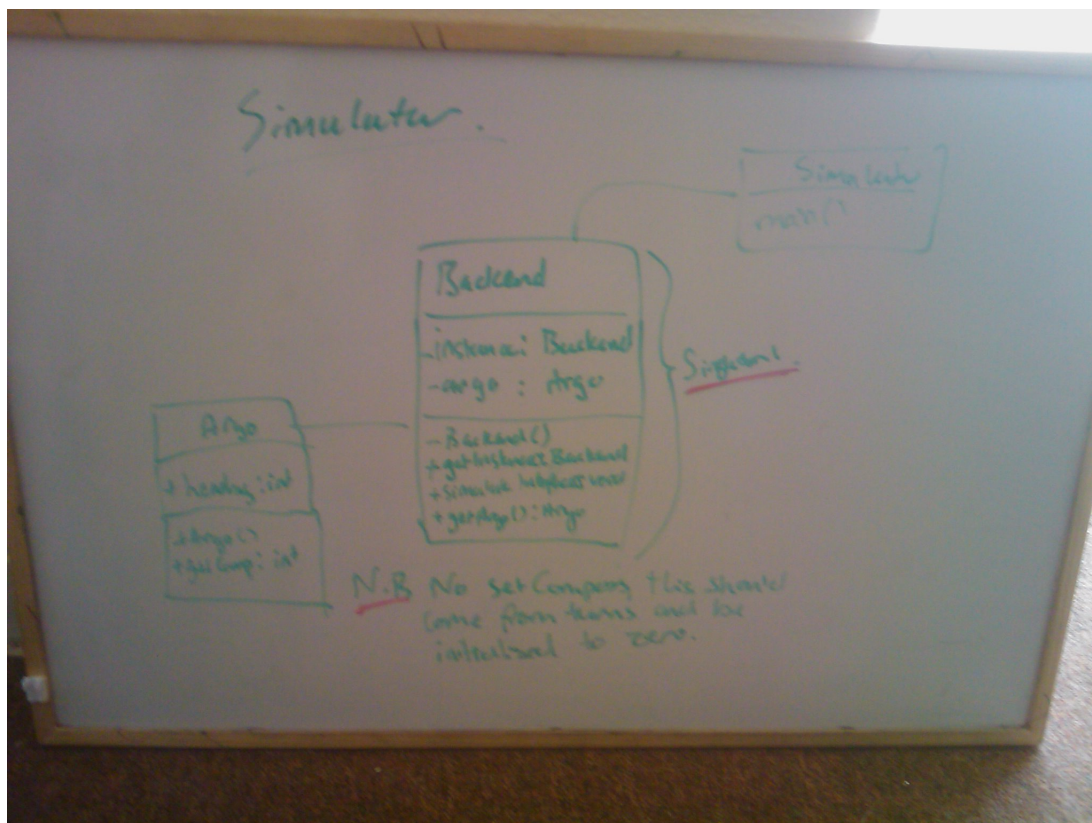 Simulator.
Simulator
main()
Backend
-instance: Backend
-argo : Argo
-Backend()
+getInstance: Backend
+simulate
+getArgo(): Argo
Argo
+heading: int
+Argo()
+getComp: int
N.B No setCompass, this should
come from turns and be
initialised to zero.